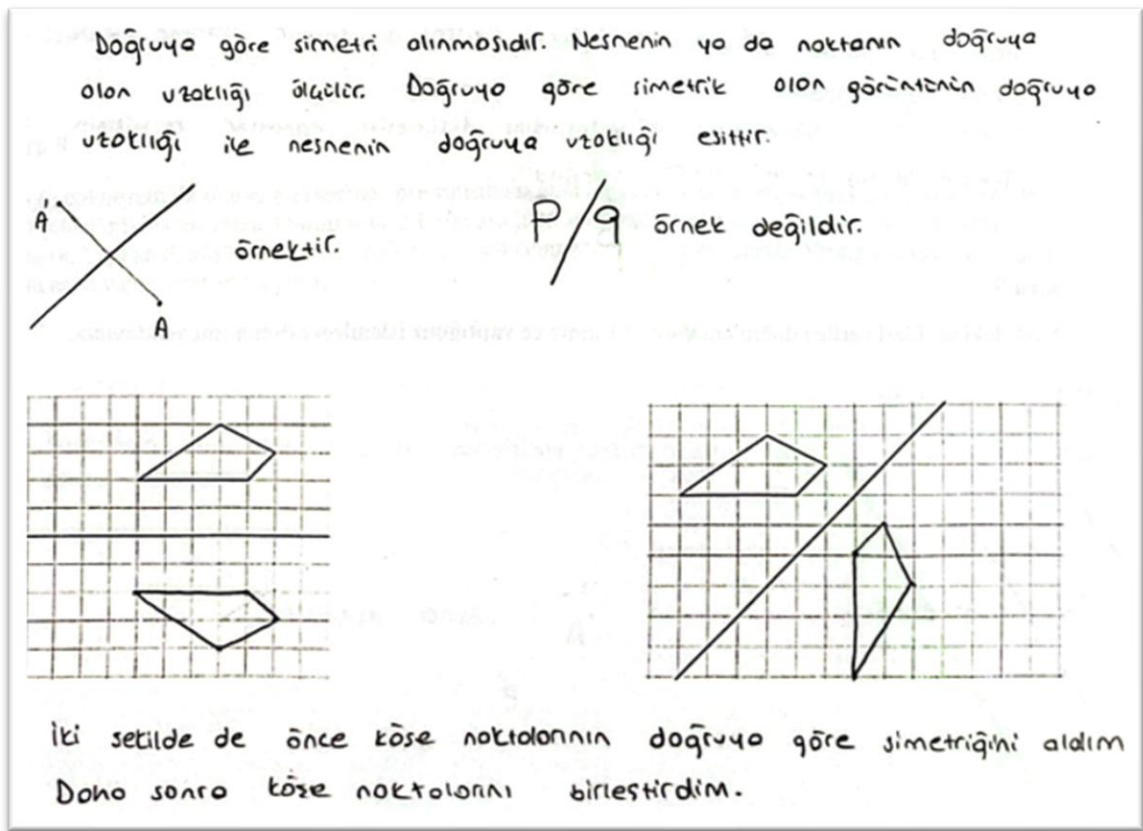 Doğruya göre simetri alınmasıdır. Nesnenin ya da noktanın doğruya
olan uzaklığı ölçülür. Doğruya göre simetrik olan görüntünün doğruya
uzaklığı ile nesnenin doğruya uzaklığı eşittir.
A'
örnektir.
A
P q örnek değildir.
İki şekilde de önce köşe noktalarının doğruya göre simetriğini aldım
Daha sonra köşe noktalarını birleştirdim.